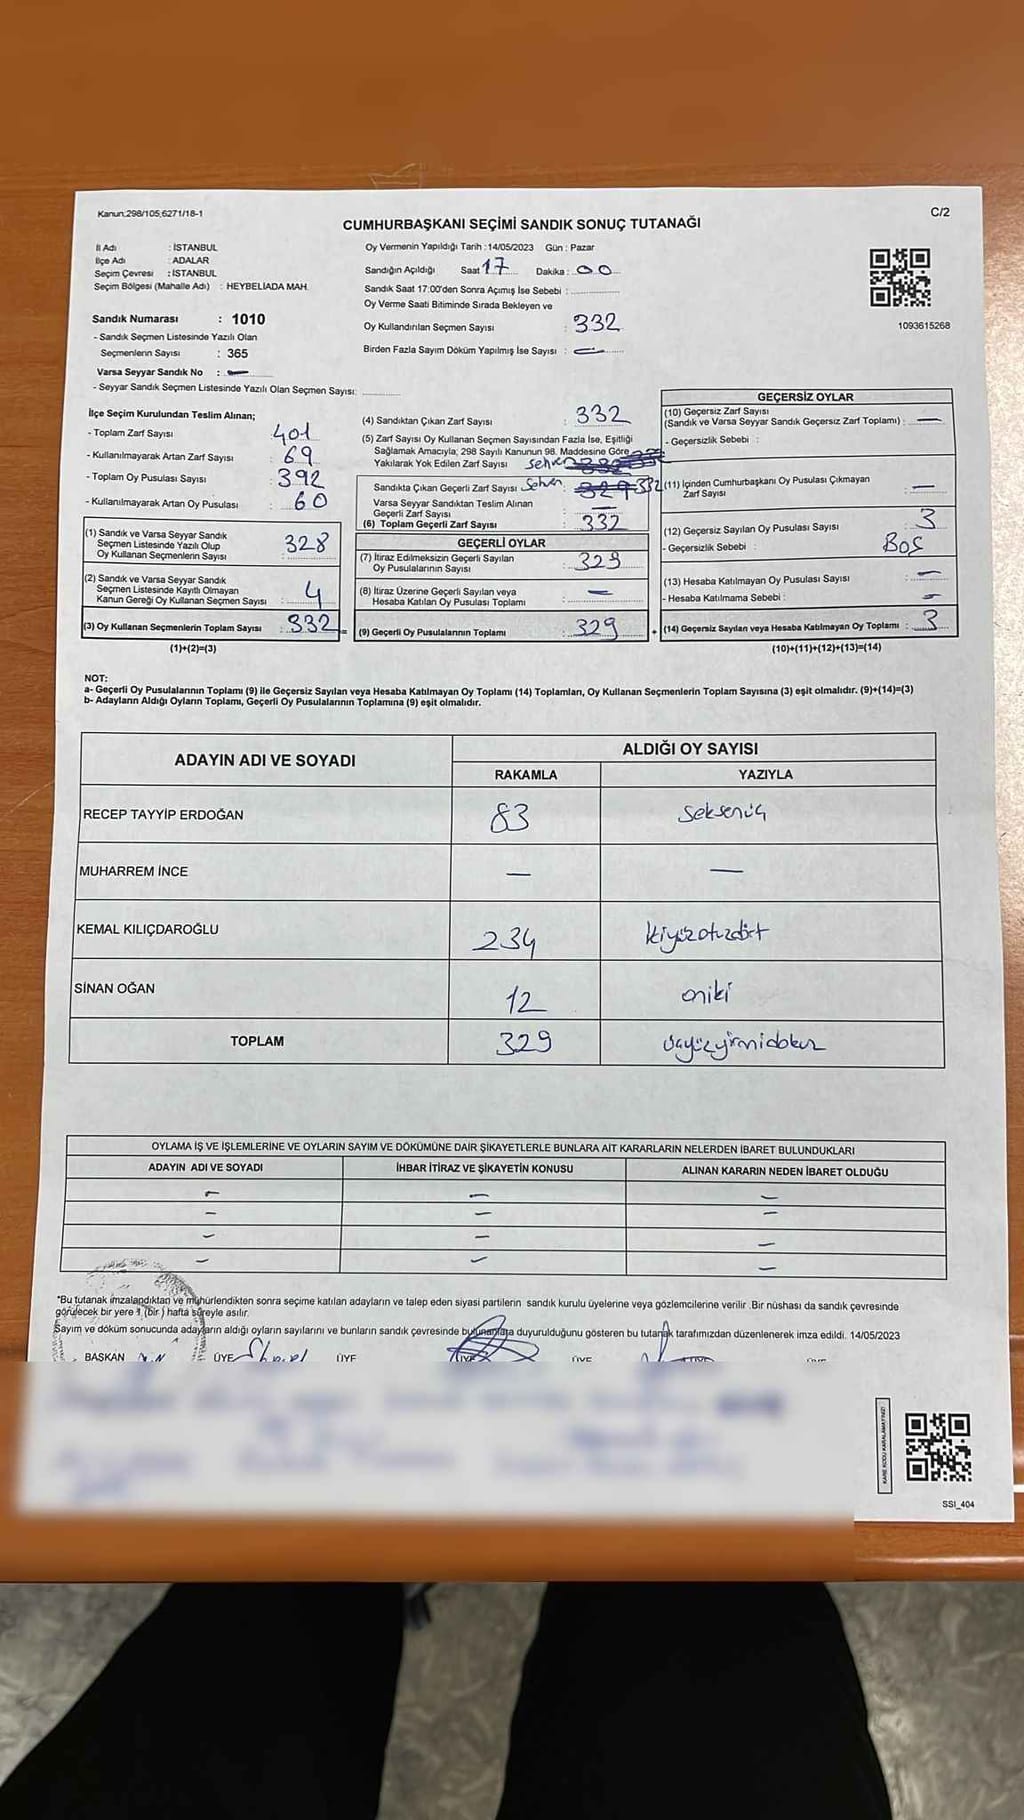 Kanun:298/105,6271/18-1
C/2
CUMHURBAŞKANI SEÇİMİ SANDIK SONUÇ TUTANAĞI
İl Adı : İSTANBUL
İlçe Adı : ADALAR
Seçim Çevresi : İSTANBUL
Seçim Bölgesi (Mahalle Adı) : HEYBELİADA MAH.
Sandık Numarası : 1010
- Sandık Seçmen Listesinde Yazılı Olan
Seçmenlerin Sayısı : 365
Varsa Seyyar Sandık No : —
- Seyyar Sandık Seçmen Listesinde Yazılı Olan Seçmen Sayısı:
Oy Vermenin Yapıldığı Tarih :14/05/2023 Gün : Pazar
Sandığın Açıldığı Saat 17 Dakika : 00
Sandık Saat 17:00'den Sonra Açımış İse Sebebi :
Oy Verme Saati Bitiminde Sırada Bekleyen ve
Oy Kullandırılan Seçmen Sayısı : 332
Birden Fazla Sayım Döküm Yapılmış İse Sayısı : —
1093615268
İlçe Seçim Kurulundan Teslim Alınan;
- Toplam Zarf Sayısı : 401
- Kullanılmayarak Artan Zarf Sayısı : 69
- Toplam Oy Pusulası Sayısı : 392
- Kullanılmayarak Artan Oy Pusulası : 60
(1) Sandık ve Varsa Seyyar Sandık
Seçmen Listesinde Yazılı Olup
Oy Kullanan Seçmenlerin Sayısı : 328
(2) Sandık ve Varsa Seyyar Sandık
Seçmen Listesinde Kayıtlı Olmayan
Kanun Gereği Oy Kullanan Seçmen Sayısı : 4
(3) Oy Kullanan Seçmenlerin Toplam Sayısı : 332
(1)+(2)=(3)
(4) Sandıktan Çıkan Zarf Sayısı : 332
(5) Zarf Sayısı Oy Kullanan Seçmen Sayısından Fazla İse, Eşitliği
Sağlamak Amacıyla; 298 Sayılı Kanunun 98. Maddesine Göre
Yakılarak Yok Edilen Zarf Sayısı Sehven
Sandıkta Çıkan Geçerli Zarf Sayısı Sehven : 329 332
Varsa Seyyar Sandıktan Teslim Alınan
Geçerli Zarf Sayısı : —
(6) Toplam Geçerli Zarf Sayısı : 332
GEÇERLİ OYLAR
(7) İtiraz Edilmeksizin Geçerli Sayılan
Oy Pusulalarının Sayısı : 329
(8) İtiraz Üzerine Geçerli Sayılan veya
Hesaba Katılan Oy Pusulası Toplamı : —
(9) Geçerli Oy Pusulalarının Toplamı : 329
GEÇERSİZ OYLAR
(10) Geçersiz Zarf Sayısı
(Sandık ve Varsa Seyyar Sandık Geçersiz Zarf Toplamı) : —
- Geçersizlik Sebebi :
(11) İçinden Cumhurbaşkanı Oy Pusulası Çıkmayan
Zarf Sayısı : —
(12) Geçersiz Sayılan Oy Pusulası Sayısı : 3
- Geçersizlik Sebebi : Boş
(13) Hesaba Katılmayan Oy Pusulası Sayısı : —
- Hesaba Katılmama Sebebi : —
(14) Geçersiz Sayılan veya Hesaba Katılmayan Oy Toplamı : 3
(10)+(11)+(12)+(13)=(14)
NOT:
a- Geçerli Oy Pusulalarının Toplamı (9) ile Geçersiz Sayılan veya Hesaba Katılmayan Oy Toplamı (14) Toplamları, Oy Kullanan Seçmenlerin Toplam Sayısına (3) eşit olmalıdır. (9)+(14)=(3)
b- Adayların Aldığı Oyların Toplamı, Geçerli Oy Pusulalarının Toplamına (9) eşit olmalıdır.
ADAYIN ADI VE SOYADI
ALDIĞI OY SAYISI
RAKAMLA YAZIYLA
RECEP TAYYİP ERDOĞAN 83 seksenüç
MUHARREM İNCE — —
KEMAL KILIÇDAROĞLU 234 ikiyüzotuzdört
SİNAN OĞAN 12 oniki
TOPLAM 329 üçyüzyirmidokuz
OYLAMA İŞ VE İŞLEMLERİNE VE OYLARIN SAYIM VE DÖKÜMÜNE DAİR ŞİKAYETLERLE BUNLARA AİT KARARLARIN NELERDEN İBARET BULUNDUKLARI
ADAYIN ADI VE SOYADI İHBAR İTİRAZ VE ŞİKAYETİN KONUSU ALINAN KARARIN NEDEN İBARET OLDUĞU
— — —
— — —
— — —
— — —
*Bu tutanak imzalandıktan ve mühürlendikten sonra seçime katılan adayların ve talep eden siyasi partilerin sandık kurulu üyelerine veya gözlemcilerine verilir .Bir nüshası da sandık çevresinde
görülecek bir yere 1 (bir ) hafta süreyle asılır.
Sayım ve döküm sonucunda adayların aldığı oyların sayılarını ve bunların sandık çevresinde bulunanlara duyurulduğunu gösteren bu tutanak tarafımızdan düzenlenerek imza edildi. 14/05/2023
BAŞKAN ÜYE ÜYE ÜYE ÜYE ÜYE ÜYE
KARE KODU KARALAMAYINIZ!
SSI_404